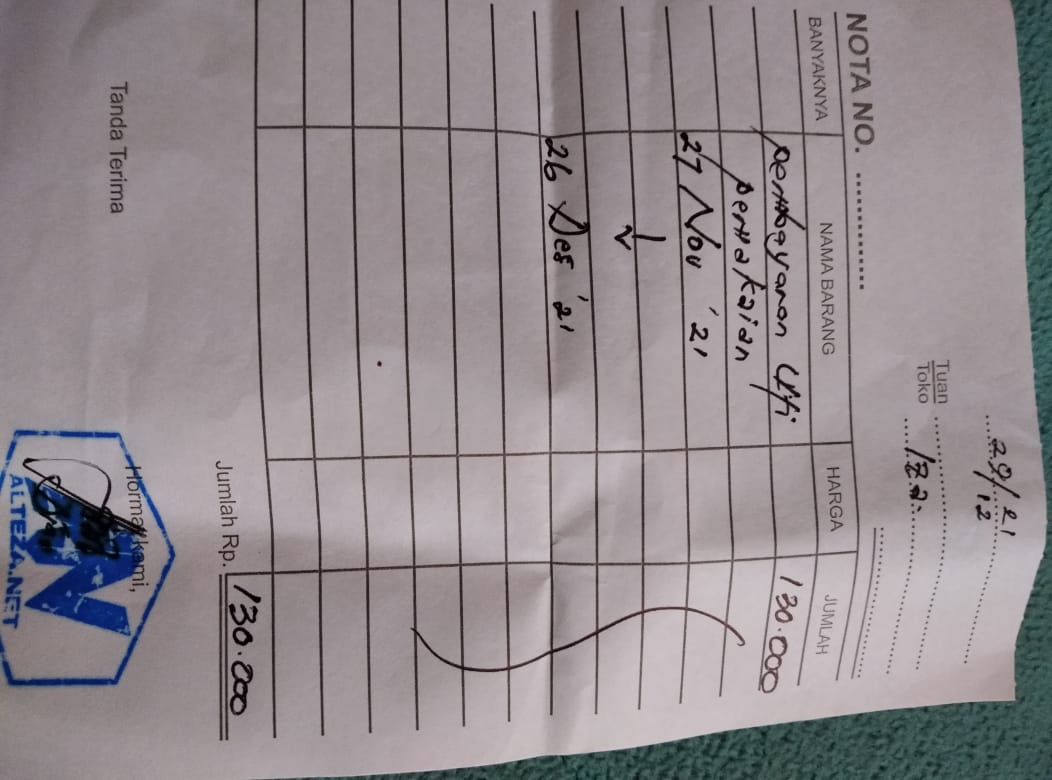 29/12 21
Tuan
Toko
Izza.
NOTA NO.
BANYAKNYA NAMA BARANG HARGA JUMLAH
pembayaran wifi 130.000
pemakaian
27 Nov '21
26 Des '21
Jumlah Rp. 130.000
Tanda Terima Hormat kami,
ALTEZA.NET